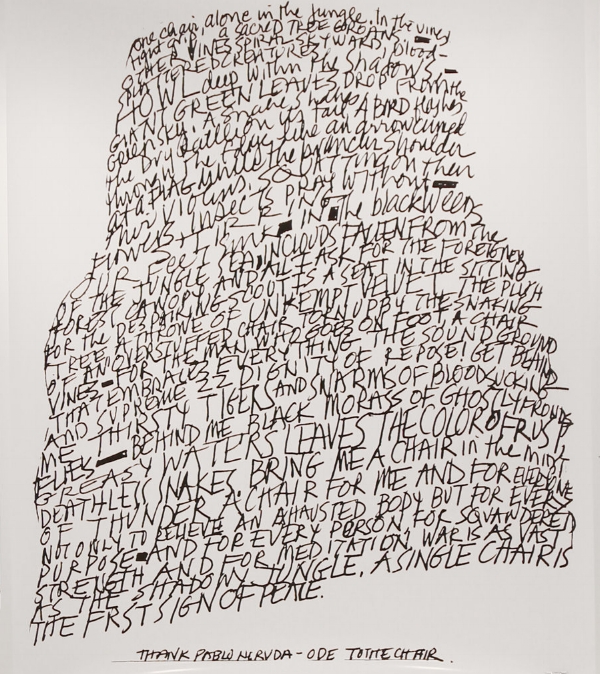 one chair, alone in the jungle. In the vines
tight grip, a SACRED TREE GROANS
OTHER VINES SPIRAL SKYWARD, blood-
SPATTERED CREATURES
HOWL deep within the Shadows,
GIANT GREEN LEAVES DROP FROM the
Green sky. a snake shakes its tail A BIRD flashes
the dry rattle on
through the foliage like an arrow aimed
at a FLAG while the branches shoulder
their VIOLINS. SQUATTING ON their
flowers insects PRAY WITHOUT
STIRRING
OUR FEET SINK IN the black weeds
OF THE JUNGLE SEA, IN CLOUDS FALLEN FROM the
FOREST CANOPY AND ALL I ASK FOR THE FOREIGNER
FOR the DESPAIRING SCOUT IS A SEAT IN THE SITTING
TREE A THRONE OF UNKEMPT VELVET THE PLUSH
OF AN OVERSTUFFED CHAIR TORN UP BY THE SNAKING
VINES - FOR THE MAN WHO GOES ON FOOT A CHAIR
THAT EMBRACES EVERYTHING THE SOUND GROUND
AND SUPREME DIGNITY OF REPOSE! GET BEHIND
ME THIRSTY TIGERS AND SWARMS OF BLOODSUCKING
FLIES - BEHIND ME BLACK MORASS OF GHOSTLY FRONDS
GREASY WATERS LEAVES THE COLOR OF RUST
DEATHLESS SNAKES. BRING ME A CHAIR in the midst
OF THUNDER A CHAIR FOR ME AND FOR EVERYONE
NOT ONLY TO RELIEVE AN EXHAUSTED BODY BUT FOR EVERY
PURPOSE AND FOR EVERY PERSON, FOR SQUANDERED
STRENGTH AND FOR MEDITATION. WAR IS AS VAST
AS THE SHADOWY JUNGLE. A SINGLE CHAIR IS
THE FIRST SIGN OF PEACE.
THANK PABLO NERUDA - ODE TO THE CHAIR.